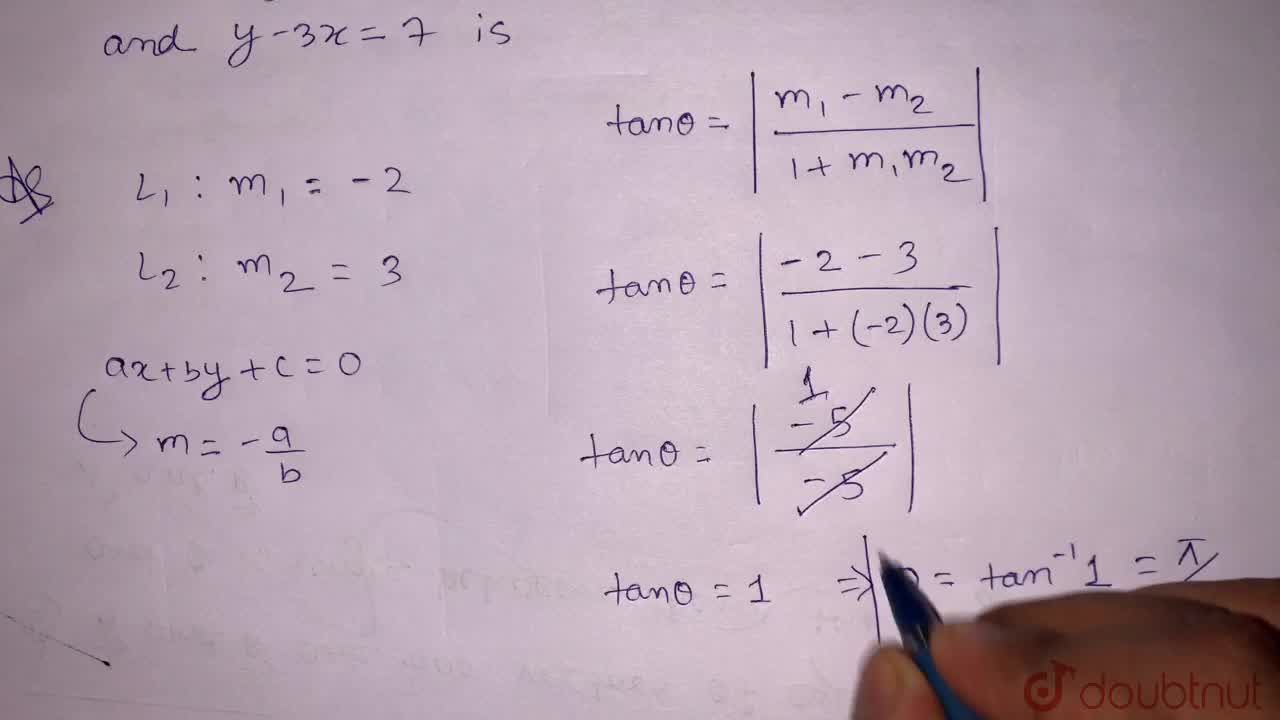 and y-3x=7 is
L₁ : m₁ = -2
L₂ : m₂ = 3
ax+by+c=0
m = -a/b
tanθ = |(m₁ - m₂)/(1 + m₁m₂)|
tanθ = |(-2 - 3)/(1 + (-2)(3))|
1
tanθ = |-5/-5|
tanθ = 1 ⇒ = tan⁻¹1 = π/
doubtnut